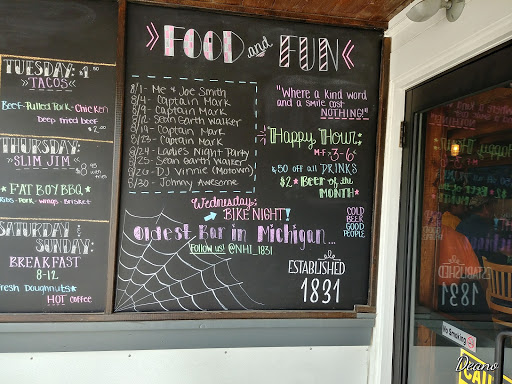 TUESDAY: $1.00
»TACOS«
Beef-Pulled Pork-Chicken
Deep fried beef
$2.00
THURSDAY:
»SLIM JIM«
*FAT BOY BBQ*
Ribs-Pork-Wings-Brisket
SATURDAY &
SUNDAY:
BREAKFAST
8-12
Fresh Doughnuts*
HOT Coffee
»FOOD and FUN«
8/1- Me & Joe Smith
8/4- Captain Mark
8/9- Captain Mark
8/12- Sean Garth Walker
8/19- Captain Mark
8/23- Captain Mark
8/24- Ladies Night Party
8/25- Sean Garth Walker
8/26- DJ Vinnie (Motown)
8/30- Johnny Awesome
"Where a kind word
and a smile cost
NOTHING!"
Happy Hour:
M-F » 3-6
$.50 off all DRINKS
$2 *Beer of the
MONTH*
Wednesday:
BIKE NIGHT!
COLD
BEER
GOOD
PEOPLE
Oldest Bar in Michigan...
Follow us! @NHI_1831
ESTABLISHED
1831
ESTABLISHED
1831
No Smoking
Deano